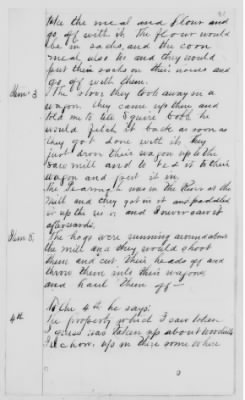 take the meal and flour and
go off with it. The flour would
be in sacks, and the corn
meal also too and they would
put their sacks on their horses and
go off with them.
Item 3. The stove they took away in a
wagon. They came up there and
told me to tell Squire both he
would fetch it back as soon as
they got done with it; they
just drove their wagon up to the
Saw mill and to tied it to their
wagon and put it in.
The was in the River at the
Mill and they got in it and paddled
it up the river and I never saw it
afterwards.
Item 5. The hogs were running around about
the mill and they would shoot
them and cut their heads off and
throw them into their wagons
and haul them off.
4th To the 4th he says:
The property which I saw taken
I guess was taken up about
up in there some where